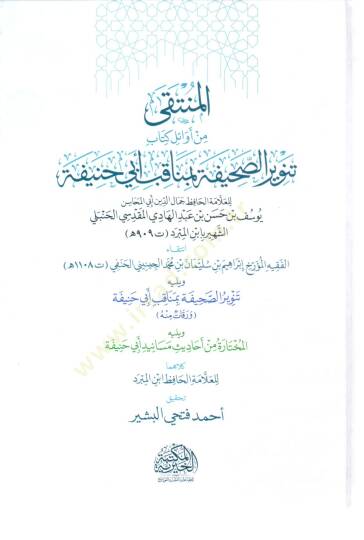 المنتقى
من أوائل كتاب
تنوير الصحيفة بمناقب أبي حنيفة
للعلامة الحافظ جمال الدين أبي المحاسن
يوسف بن حسن بن عبد الهادي المقدسي الحنبلي
الشهير بابن المبرد (ت ٩٠٩ هـ)
انتقاء
الفقيه المؤرخ إبراهيم بن سليمان بن محمد الجينيني الحنفي (ت ١١٠٨ هـ)
ويليه
تنوير الصحيفة بمناقب أبي حنيفة
(ورقات منه)
ويليه
المختارة من أحاديث مسانيد أبي حنيفة
كلاهما
للعلامة الحافظ ابن المبرد
تحقيق
أحمد فتحي البشير
المكتبة
الخيرية